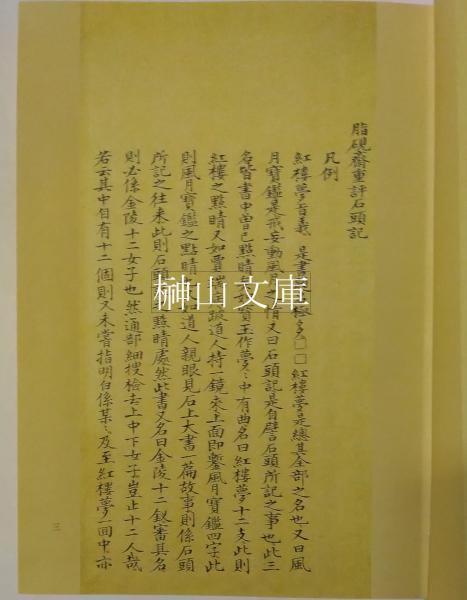 脂硯齋重評石頭記
凡例
紅樓夢旨義 是書題名極多□□紅樓夢是總其全部之名也又曰風
月寶鑑是戒妄動風月之情又曰石頭記是自譬石頭所記之事也此三
名皆書中曾已點睛矣如寶玉作夢夢中有曲名曰紅樓夢十二支此則
紅樓夢之點睛又如賈瑞病跛道人持一鏡來上面即鏨風月寶鑑四字此
則風月寶鑑之點睛又如道人親眼見石上大書一篇故事則係石頭
所記之往來此則石頭記之點睛處然此書又名曰金陵十二釵審其名
則必係金陵十二女子也然通部細搜檢去上中下女子豈止十二人哉
若云其中自有十二個則又未嘗指明白係某々及至紅樓夢一回中亦
三
榊山文庫